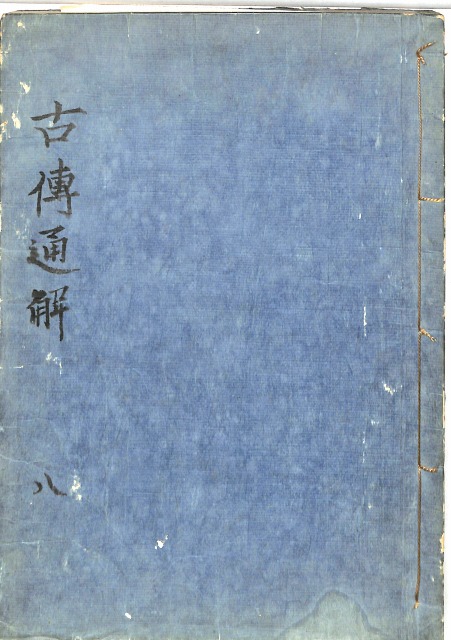 古傳通解
八